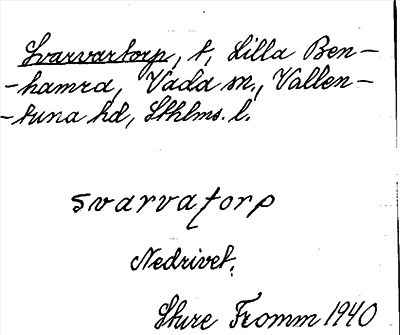 Svarvartorp, t, Lilla Ben-
-hamra, Vada sn., Vallen-
-tuna hd, Sthlms. l.
svarvatorp
Nedrivet.
Sture Fromm 1940